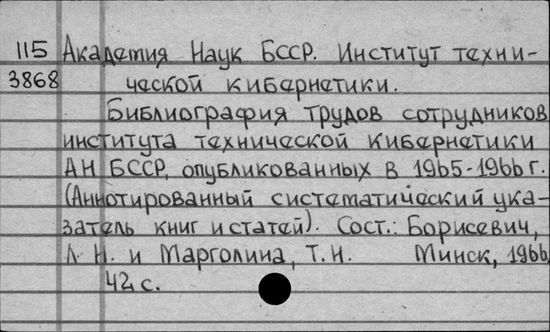 115 Академия Наук БССР. Институт техни-
3868 ческой кибернетики.
Библиография трудов сотрудников
института технической кибернетики
АН БССР, опубликованных в 1965-1966 г.
(Аннотированный систематический ука-
затель книг и статей). Сост.: Борисевич,
Л. Н. и Марголина, Т. И. Минск, 1966,
42 с.